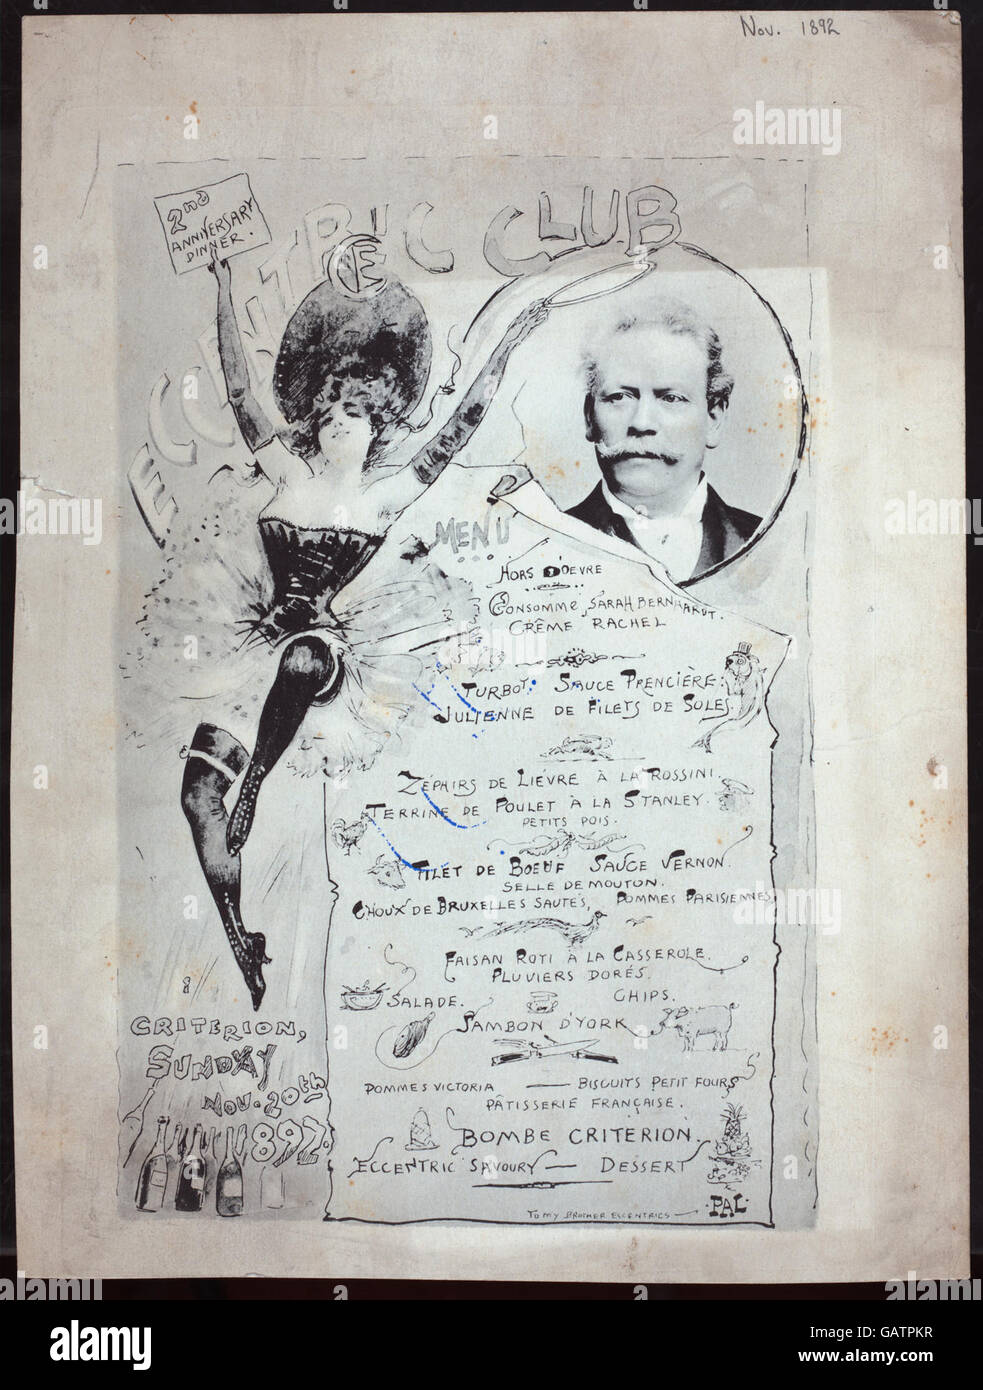 Nov. 1892
2ND
ANNIVERSARY
DINNER.
ECCENTRIC CLUB
E
MENU
HORS D'OEVRE
CONSOMME, SARAH BERNHARDT.
CRÊME RACHEL
TURBOT. SAUCE PRENCIÈRE.
JULIENNE DE FILETS DE SOLES.
ZÉPHIRS DE LIÈVRE À LA ROSSINI.
TERRINE DE POULET À LA STANLEY.
PETITS POIS.
FILET DE BOEUF SAUCE VERNON.
SELLE DE MOUTON.
CHOUX DE BRUXELLES SAUTÉS, POMMES PARISIENNES,
FAISAN ROTI À LA CASSEROLE.
PLUVIERS DORÉS.
SALADE. CHIPS.
JAMBON D'YORK
POMMES VICTORIA — BISCUITS PETIT FOURS
PÂTISSERIE FRANÇAISE.
BOMBE CRITERION.
ECCENTRIC SAVOURY — DESSERT
TO MY BROTHER ECCENTRICS — PAL.
CRITERION,
SUNDAY
NOV. 20th
1892.
alamy
alamy
alamy
Image ID: GATPKR
www.alamy.com